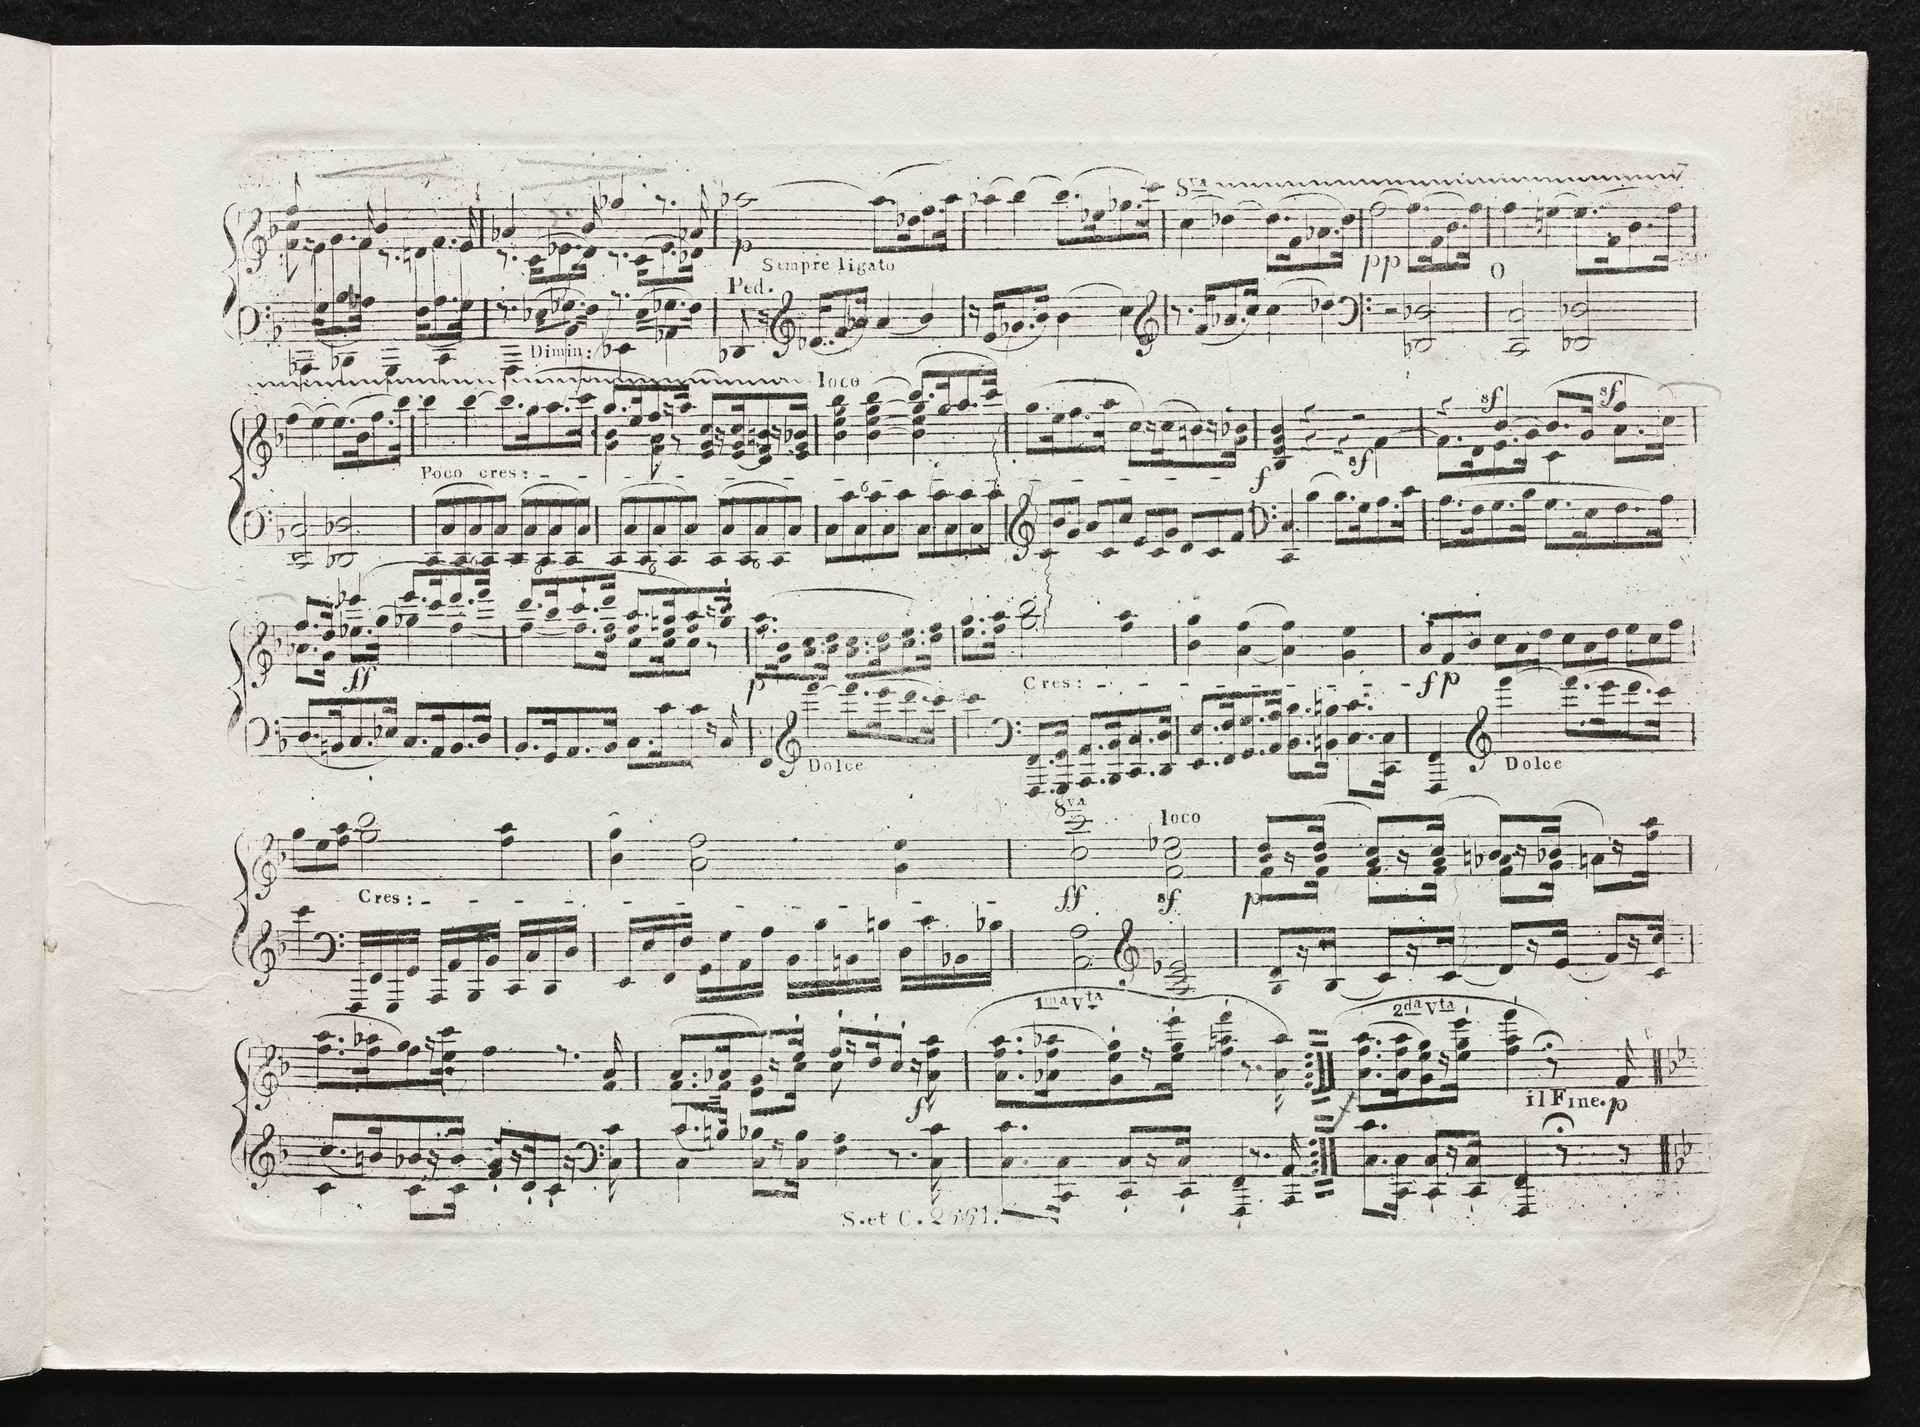 7
8va
p
Sempre ligato
pp
O
Ped.
Dimin:
loco
sf sf
Poco cres:
f
sf
6
6 6 6
ff
p
Cres:
fp
Dolce
Dolce
8va
loco
Cres:
ff
sf
p
1ma Vta
2da Vta
f
il Fine. p
S. et C. 2661.